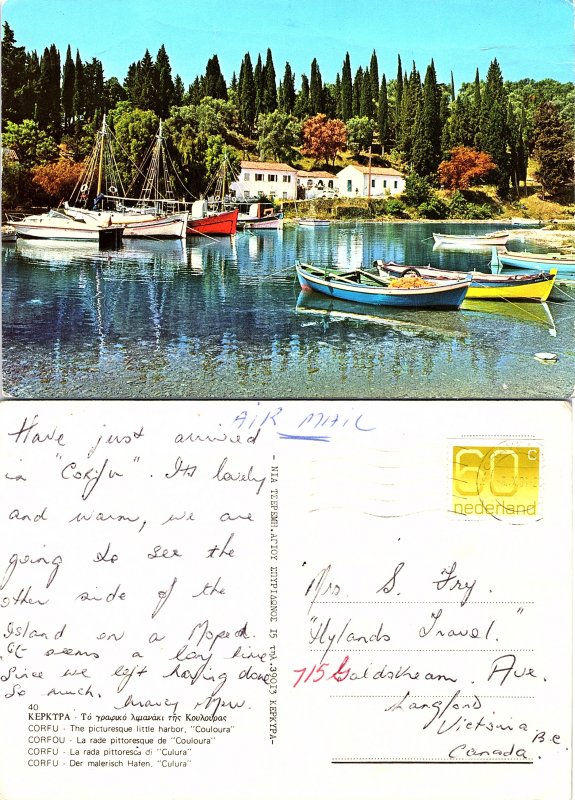 AIR MAIL
Have just arrived
in "Corfu". Its lovely
and warm, we are
going to see the
other side of the
Island on a Moped.
It seems a long time
Since we left having done
So much.
40
ΚΕΡΚΥΡΑ - Τὸ γραφικὸ λιμανάκι τῆς Κουλούρας
CORFU - The picturesque little harbor, "Couloura"
CORFOU - La rade pittoresque de "Couloura"
CORFU - La rada pittoresca di "Culura"
CORFU - Der malerisch Hafen, "Culura"
- ΝΙΑ ΤΣΕΡΕΜΗ, ΑΓΙΟΥ ΣΠΥΡΙΔΩΝΟΣ 15 τηλ. 39013 ΚΕΡΚΥΡΑ-
60c
nederland
Mrs S. Fry.
"Hylands Travel."
715 Goldstream. Ave.
Langford.
Victoria B.C.
Canada.